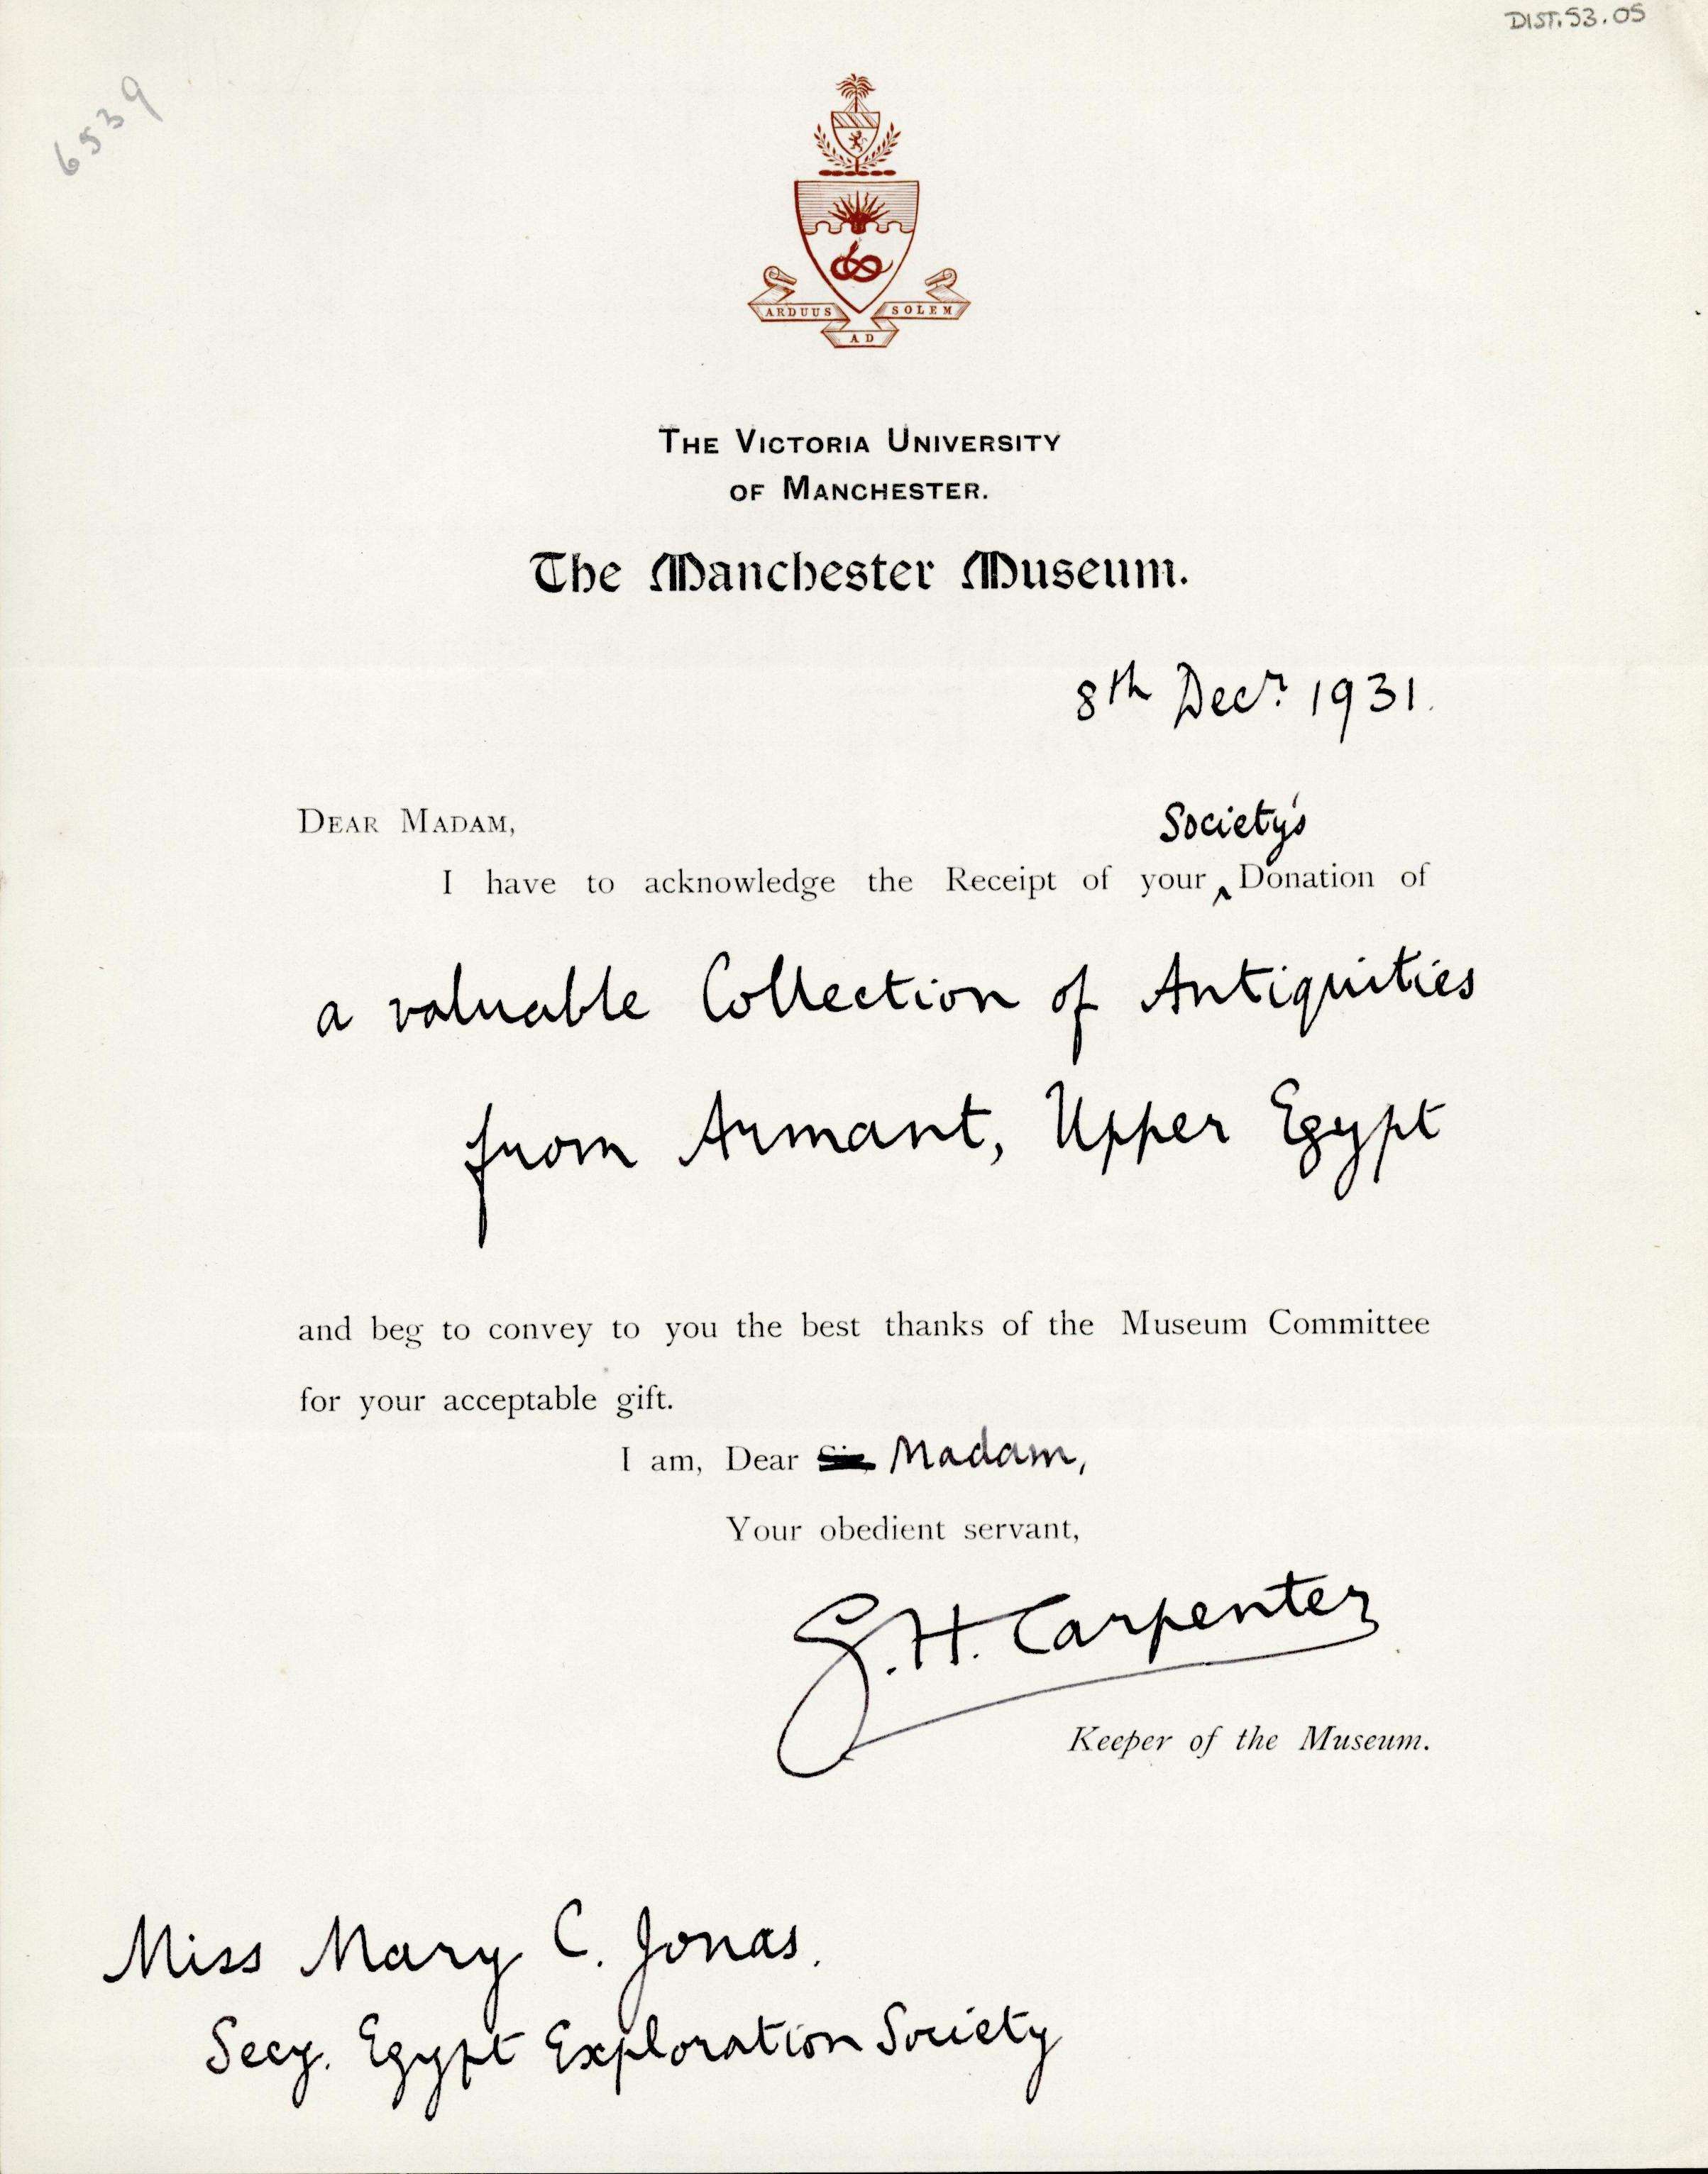 DIST.53.05
6539
ARDUUS AD SOLEM
THE VICTORIA UNIVERSITY
OF MANCHESTER.
The Manchester Museum.
8th Decr. 1931.
DEAR MADAM,
Society's
I have to acknowledge the Receipt of your ‸ Donation of
a valuable Collection of Antiquities
from Armant, Upper Egypt
and beg to convey to you the best thanks of the Museum Committee
for your acceptable gift.
I am, Dear Sir, Madam,
Your obedient servant,
G. H. Carpenter
Keeper of the Museum.
Miss Mary C. Jonas.
Secy. Egypt Exploration Society